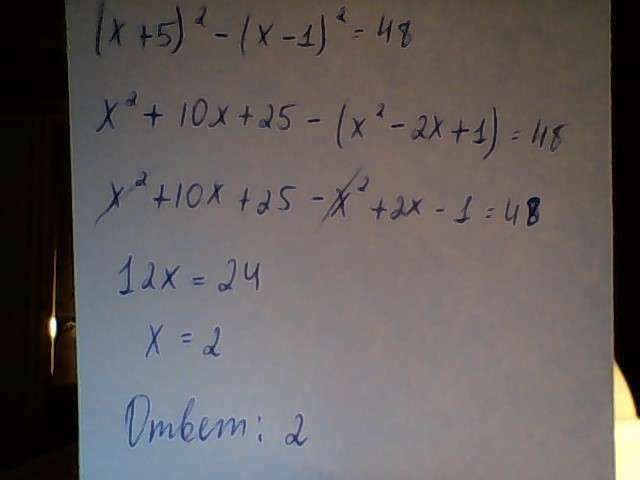 (x+5)² - (x-1)² = 48
x² + 10x + 25 - (x² - 2x + 1) = 48
x² + 10x + 25 - x² + 2x - 1 = 48
12x = 24
x = 2
Ответ: 2